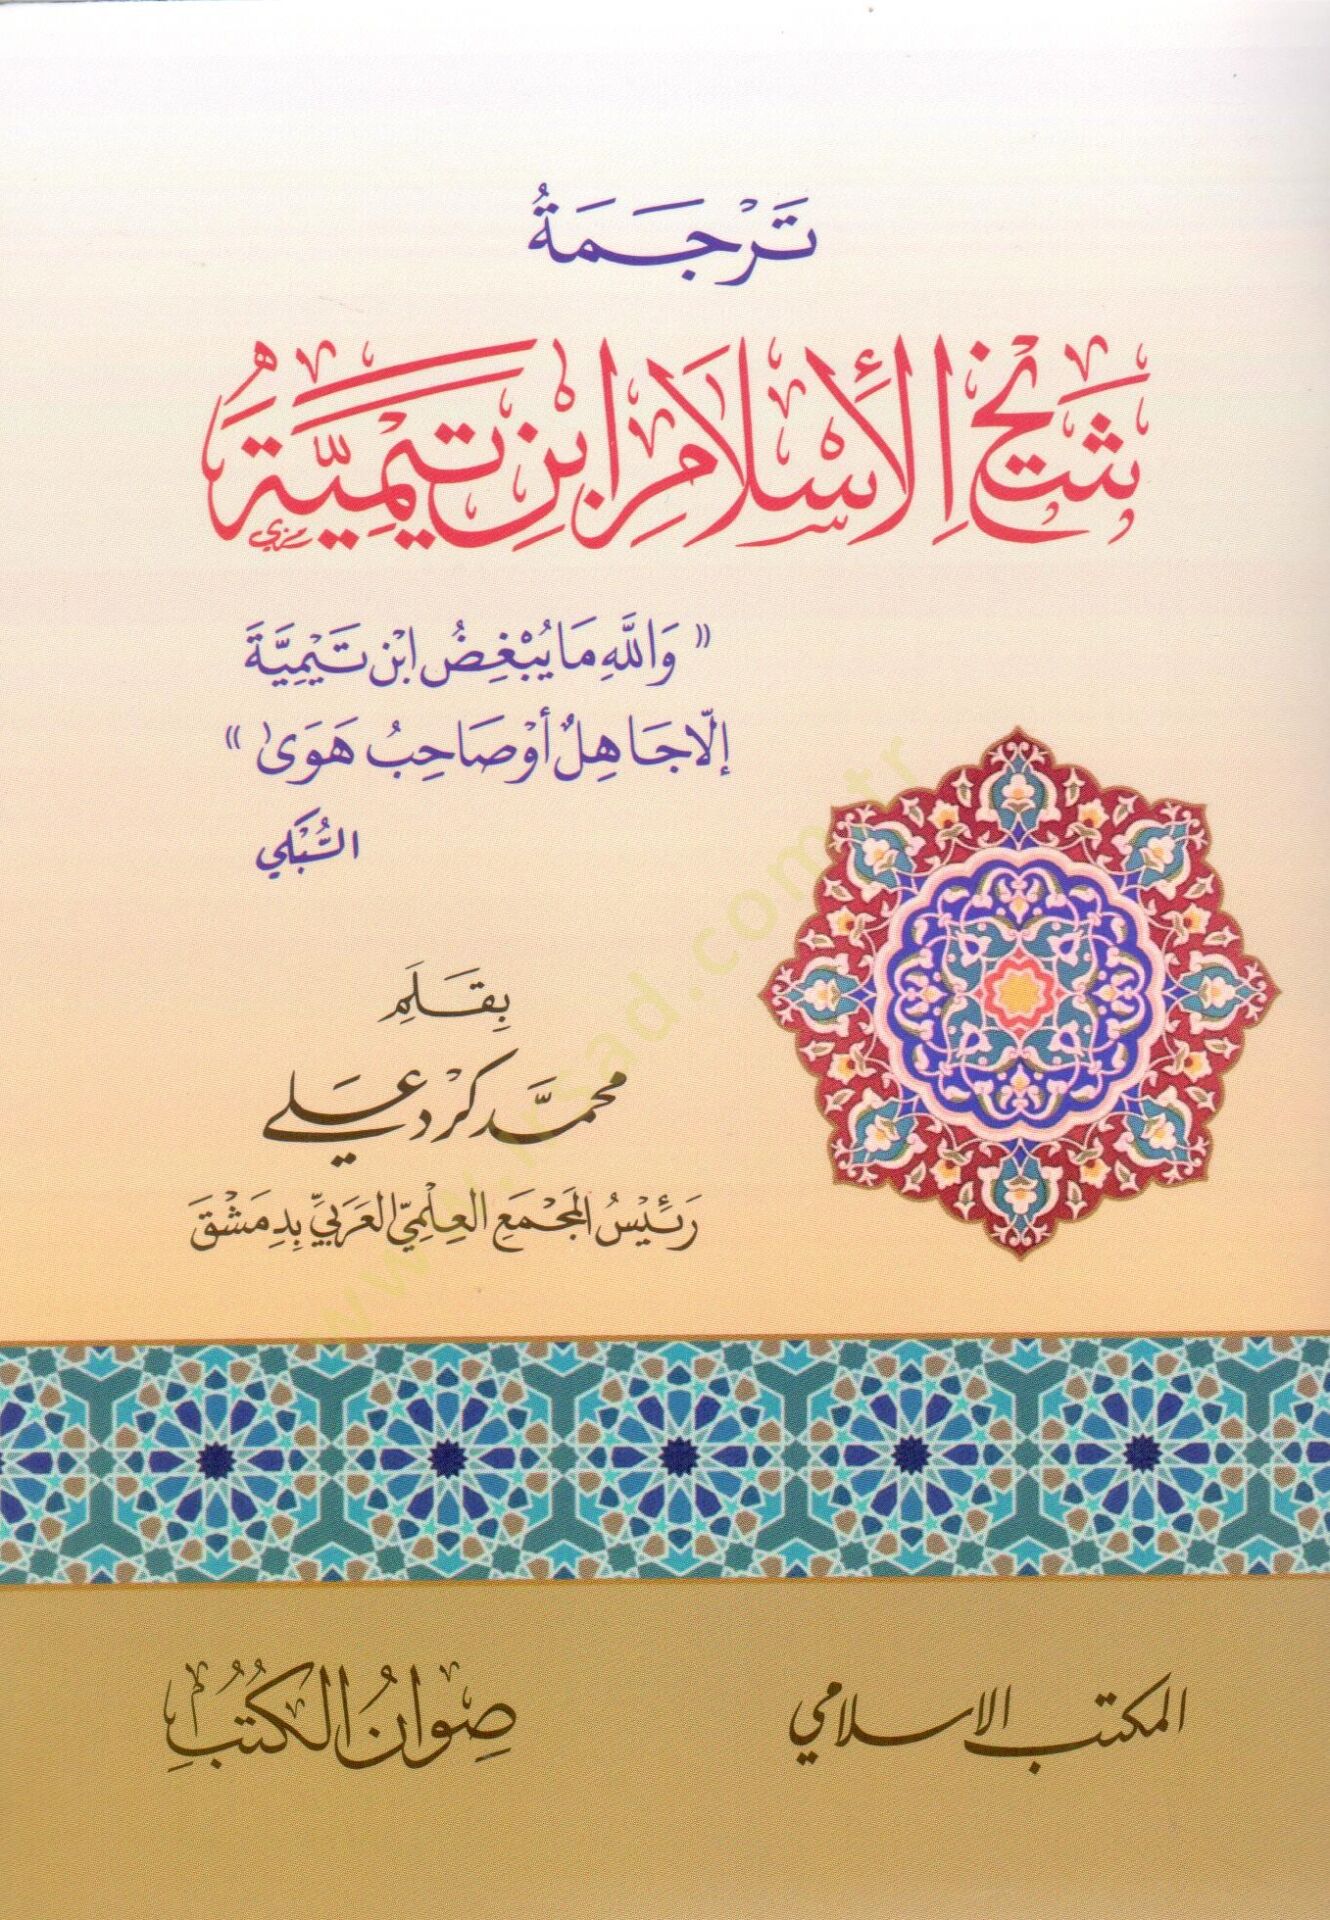 تَرْجَمَةُ
شَيْخِ الْإِسْلَامِ ابْنِ تَيْمِيَّةَ
« وَاللَّهِ مَا يُبْغِضُ ابْنَ تَيْمِيَّةَ
إلّا جَاهِلٌ أَوْ صَاحِبُ هَوَىٰ »
السُّبْكي
بِقَلَمِ
محمَّد كُرْد عَلي
رَئيسُ المَجْمَعِ العِلْمِيِّ العَرَبيِّ بِدِمَشْقَ
المكتب الاسلامي
صِوَانُ الكُتُبِ